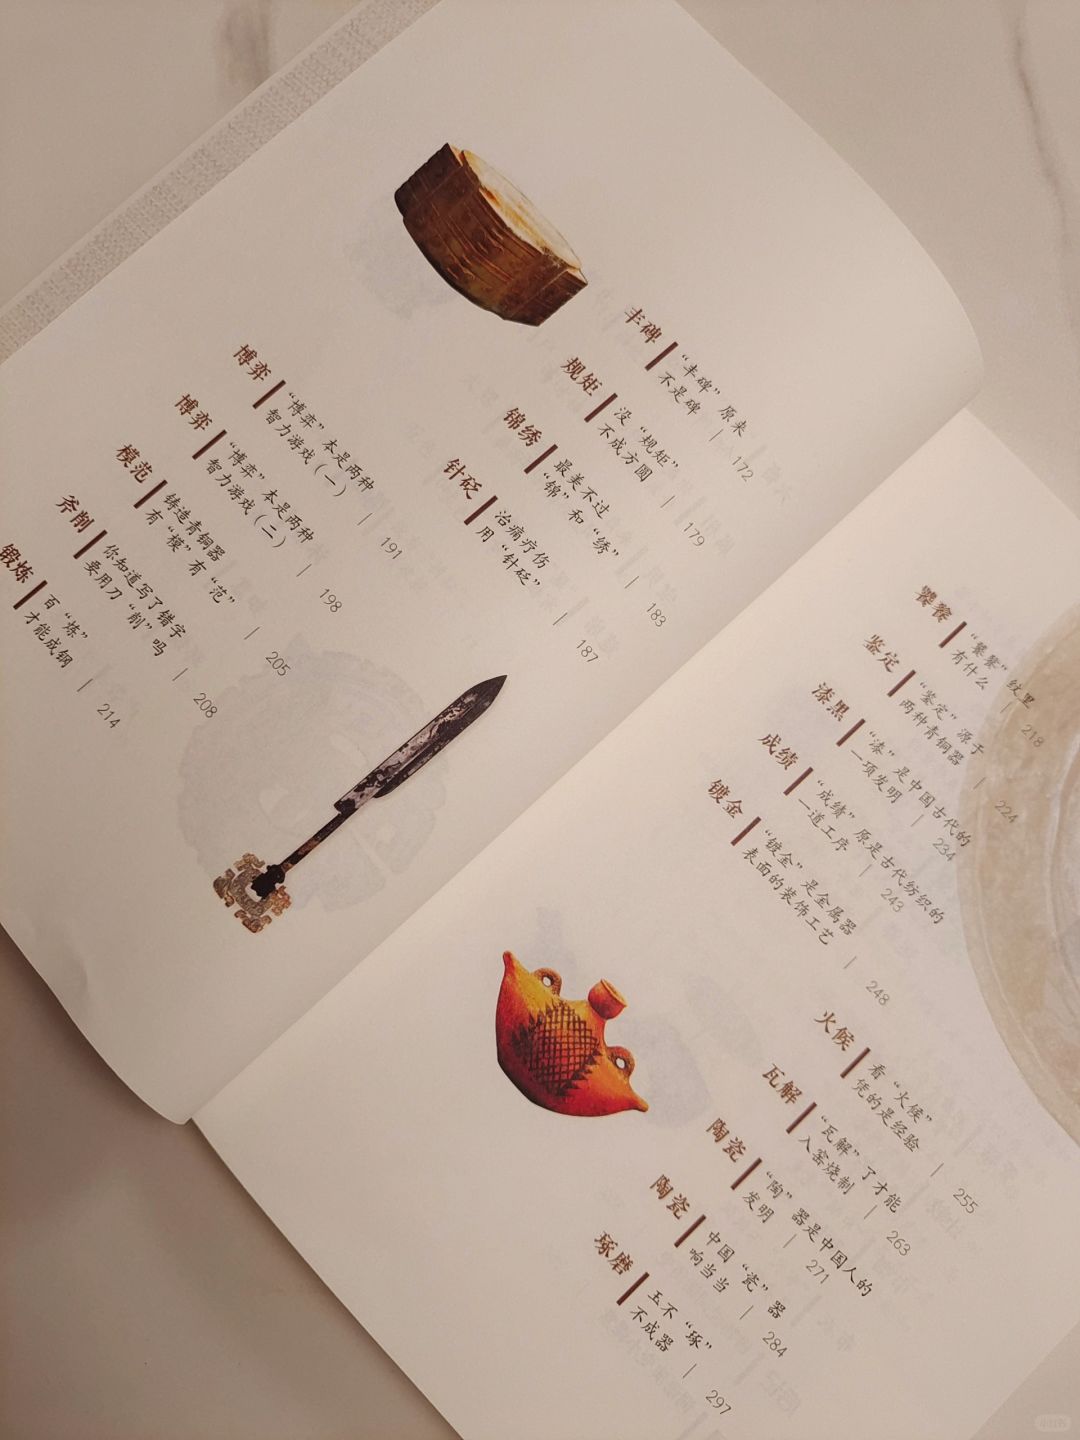 丰碑
“丰碑”原来
不是碑
172
规矩
没“规矩”
不成方圆
179
锦绣
最美不过
“锦”和“绣”
183
针砭
治痛疗伤
用“针砭”
187
博弈
“博弈”本是两种
智力游戏（一）
191
博弈
“博弈”本是两种
智力游戏（二）
198
模范
铸造青铜器
有“模”有“范”
205
斧削
你知道写了错字
要用刀“削”吗
208
锻炼
百“炼”
才能成钢
214
饕餮
“饕餮”纹里
有什么
218
鉴定
“鉴定”源于
两种青铜器
224
漆黑
“漆”是中国古代的
一项发明
234
成绩
“成绩”原是古代纺织的
一道工序
243
镀金
“镀金”是金属器
表面的装饰工艺
248
火候
看“火候”
凭的是经验
255
瓦解
“瓦解”了才能
入窑烧制
263
陶瓷
“陶”器是中国人的
发明
271
陶瓷
中国“瓷”器
响当当
284
琢磨
玉不“琢”
不成器
297
小红书